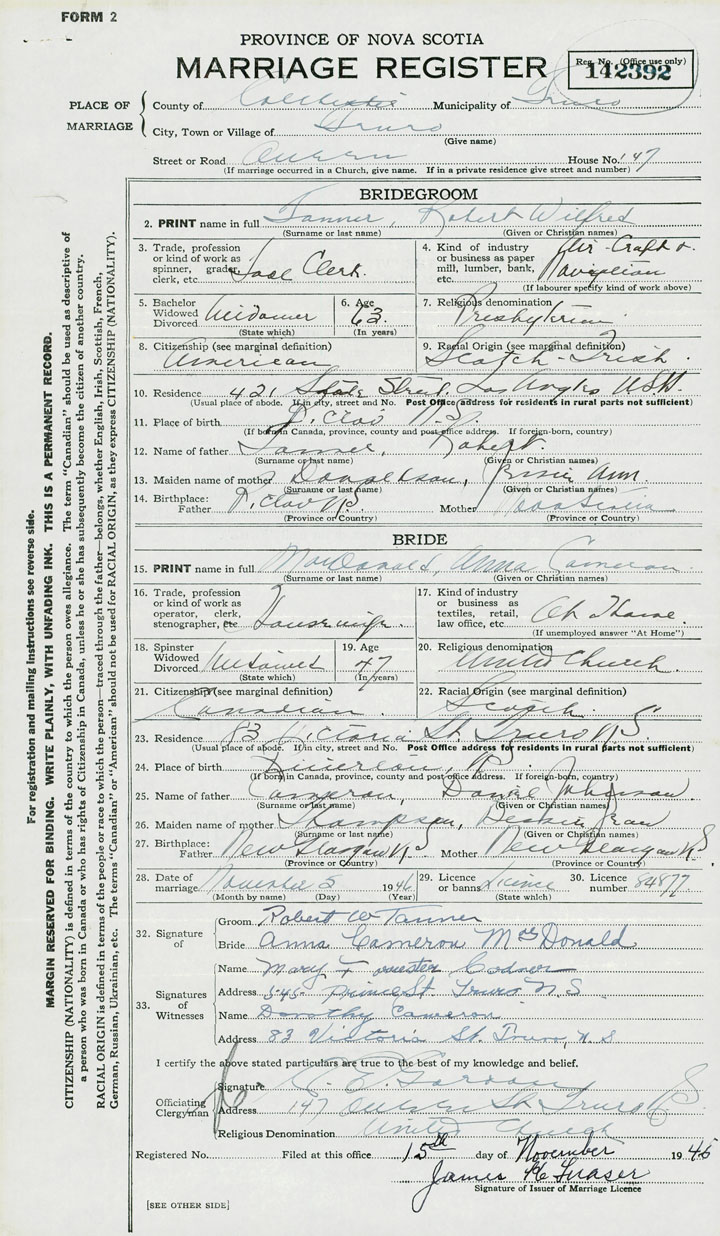 FORM 2
PROVINCE OF NOVA SCOTIA
MARRIAGE REGISTER
Reg. No. (Office use only)
142392
PLACE OF MARRIAGE
County of Colchester Municipality of Truro
City, Town or Village of Truro
(Give name)
Street or Road Queen House No. 147
(If marriage occurred in a Church, give name. If in a private residence give street and number)
BRIDEGROOM
2. PRINT name in full Tanner, Robert Wilfred
(Surname or last name) (Given or Christian names)
3. Trade, profession or kind of work as spinner, grader, clerk, etc. Tool Clerk.
4. Kind of industry or business as paper mill, lumber, bank, etc. Air-Craft &
(If labourer specify kind of work above)
5. Bachelor Widowed Divorced Widower
(State which)
6. Age 63.
(In years)
7. Religious denomination Presbyterian
8. Citizenship (see marginal definition) American
9. Racial Origin (see marginal definition) Scotch-Irish.
10. Residence 421 State Street, Los Angles USA.
(Usual place of abode. If in city, street and No. Post Office address for residents in rural parts not sufficient)
11. Place of birth Pictou N.S.
(If born in Canada, province, county and post office address. If foreign-born, country)
12. Name of father Tanner, Robert.
(Surname or last name) (Given or Christian names)
13. Maiden name of mother Donaldson, Ann.
(Surname or last name) (Given or Christian names)
14. Birthplace: Father Pictou NS Mother Nova Scotia
(Province or Country) (Province or Country)
BRIDE
15. PRINT name in full MacDonald, Anna Cameron
(Surname or last name) (Given or Christian names)
16. Trade, profession or kind of work as operator, clerk, stenographer, etc Housewife.
17. Kind of industry or business as textiles, retail, law office, etc At Home.
(If unemployed answer "At Home")
18. Spinster Widowed Divorced Widowed
(State which)
19. Age 47
(In years)
20. Religious denomination United Church.
21. Citizenship (see marginal definition) Canadian.
22. Racial Origin (see marginal definition) Scotch.
23. Residence 83 Victoria St. Truro N S
(Usual place of abode. If in city, street and No. Post Office address for residents in rural parts not sufficient)
24. Place of birth NS
(If born in Canada, province, county and post office address. If foreign-born, country)
25. Name of father Cameron, Daniel Johnson
(Surname or last name) (Given or Christian names)
26. Maiden name of mother Thompson, Jean
(Surname or last name) (Given or Christian names)
27. Birthplace: Father New Glasgow NS Mother New Glasgow NS
(Province or Country) (Province or Country)
28. Date of marriage November 5 1946
(Month by name) (Day) (Year)
29. Licence or banns Licence
(State which)
30. Licence number 84877
32. Signature of
Groom Robert W Tanner
Bride Anna Cameron McDonald
33. Signatures of Witnesses
Name Mary Codner
Address 545 Prince St Truro N.S
Name Dorothy Cameron
Address 83 Victoria St. Truro, N.S
I certify the above stated particulars are true to the best of my knowledge and belief.
Officiating Clergyman
Signature C. E. Gordon
Address 147 Queen St Truro NS
Religious Denomination United Church
Registered No. Filed at this office 15th day of November 1946
James H Fraser
Signature of Issuer of Marriage Licence
[SEE OTHER SIDE]
For registration and mailing instructions see reverse side.
MARGIN RESERVED FOR BINDING. WRITE PLAINLY, WITH UNFADING INK. THIS IS A PERMANENT RECORD.
CITIZENSHIP (NATIONALITY) is defined in terms of the country to which the person owes allegiance. The term "Canadian" should be used as descriptive of
a person who was born in Canada or who has rights of Citizenship in Canada, unless he or she has subsequently become the citizen of another country.
RACIAL ORIGIN is defined in terms of the people or race to which the person—traced through the father—belongs, whether English, Irish, Scottish, French,
German, Russian, Ukrainian, etc. The terms "Canadian" or "American" should not be used for RACIAL ORIGIN, as they express CITIZENSHIP (NATIONALITY).